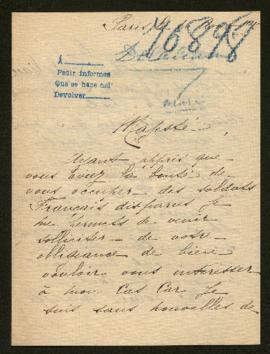 Paris
16898
A
Pedir informes
Que se hace acá
Devolver
Majesté,
Ayant appris que
vous avez la bonté de
vous occuper des soldats
Français disparus je
me permets de venir
solliciter de votre
de bien
vouloir vous intéresser
à mon cas car je
suis sans nouvelles de